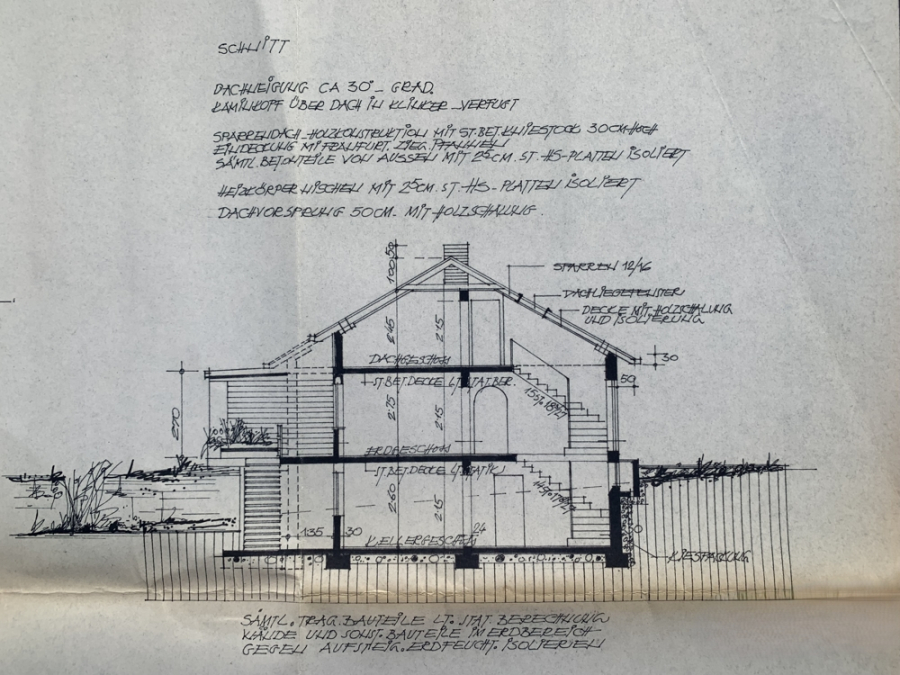 SCHNITT
DACHNEIGUNG CA 30° GRAD.
KAMINKOPF ÜBER DACH IN KLINKER VERFUGT
SPARRENDACH HOLZKONSTRUKTION MIT ST.BET.KNIESTOCK 30CM HOCH
EINDECKUNG MIT FRANKFURT. ZIEG. PFANNEN
SÄMTL. BETONTEILE VON AUSSEN MIT 2⁵CM. ST. HS-PLATTEN ISOLIERT
HEIZKÖRPERNISCHEN MIT 2⁵CM. ST. HS-PLATTEN ISOLIERT
DACHVORSPRUNG 50CM. MIT HOLZSCHALUNG.
50
100
SPARREN 12/16
DACHLIEGEFENSTER
DECKE MIT HOLZSCHALUNG
UND ISOLIERUNG
245
215
30
DACHGESCHOSS
ST.BET.DECKE LT. STAT. BER.
50
270
275
215
ERDGESCHOSS
ST.BET.DECKE LT. STATIK
260
215
135
30
24
KELLERGESCHOSS
KIESPACKUNG
SÄMTL. TRAG. BAUTEILE LT. STAT. BERECHNUNG
WÄNDE UND SONST. BAUTEILE IM ERDBEREICH
GEGEN AUFSTEIG. ERDFEUCHT. ISOLIEREN